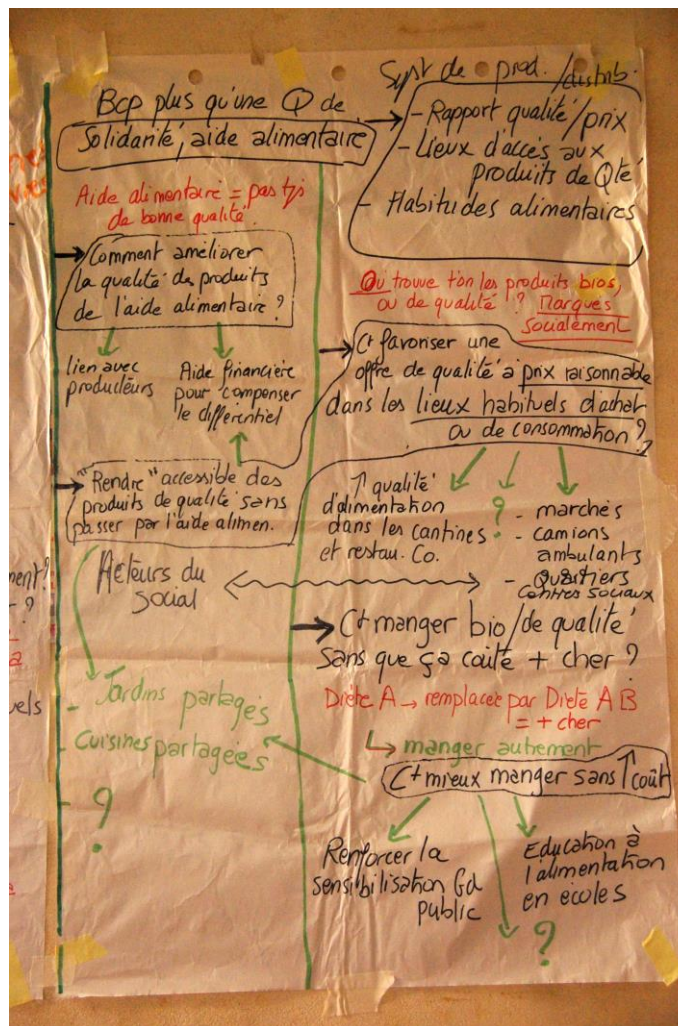 Bcp plus qu'une Q de
Solidarité, aide alimentaire
Aide alimentaire = pas tjs
de bonne qualité.
Comment améliorer
la qualité des produits
de l'aide alimentaire ?
lien avec
producteurs
Aide financière
pour compenser
le différentiel
"Rendre" accessible des
produits de qualité sans
passer par l'aide alimen.
Acteurs du
social
- Jardins partagés
- Cuisines partagées
- ?
Syst de prod. /distrib.
- Rapport qualité/prix
- Lieux d'accès aux
produits de Qté
- Habitudes alimentaires
Où trouve t'on les produits bios,
ou de qualité ? Marqués
socialement
Ct favoriser une
offre de qualité à prix raisonnable
dans les lieux habituels d'achat
ou de consommation ?
↑ qualité
d'alimentation
dans les cantines
et restau. Co.
?
- marchés
- camions
ambulants
- Quartiers
Centres sociaux
→ Ct manger bio/de qualité
sans que ça coûte + cher ?
Diète A → remplacée par Diète AB
= + cher
↳ manger autrement
Ct mieux manger sans ↑ coût
Renforcer la
sensibilisation Gd
public
Education à
l'alimentation
en écoles
?
ment?
?
a
uels